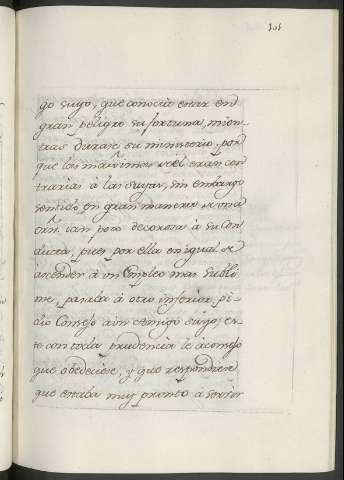 101
go suyo, que conocio estar en
gran peligro su fortuna, mien-
tras durase su ministerio, por
que las maximas de el eran con
trarias à las suyas, sin embargo
sentido en gran manera de una
orn. tan poco decorosa à su con
ducta, pues por ella en igual de
ascender à un Empleo mas subli
me, pasaba à otro inferior, pi-
dio Consejo aun Amigo suyo; es-
te con toda prudencia le aconsejo
que obedeciese, y que respondiera
que estaba muy pronto à servir